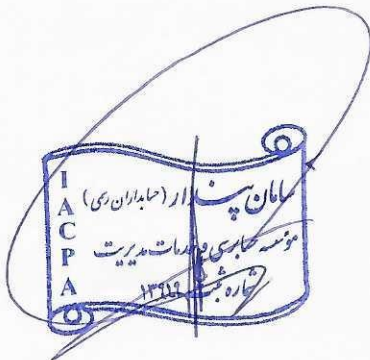 IACPA
سامان پندار (حسابداران رسمی)
مؤسسه حسابرسی و خدمات مدیریت
شماره ثبت